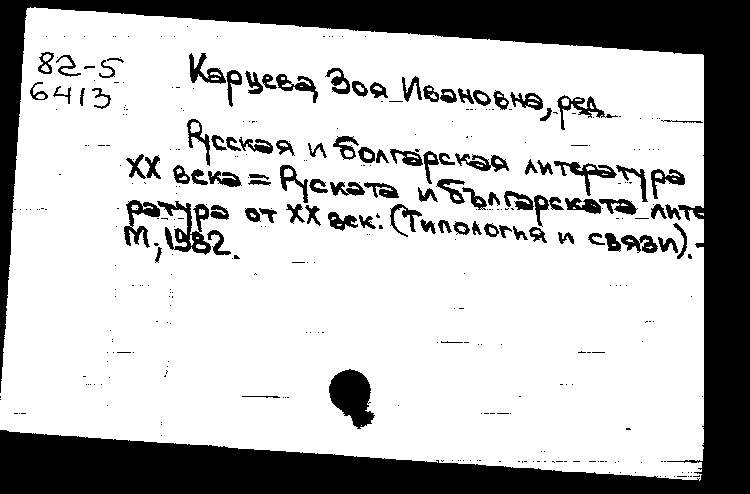 82-5
6413
Карцева, Зоя Ивановна, ред.
Русская и болгарская литература
XX века = Руската и българската лите
ратура от XX век: (Типология и связи).-
М., 1982.